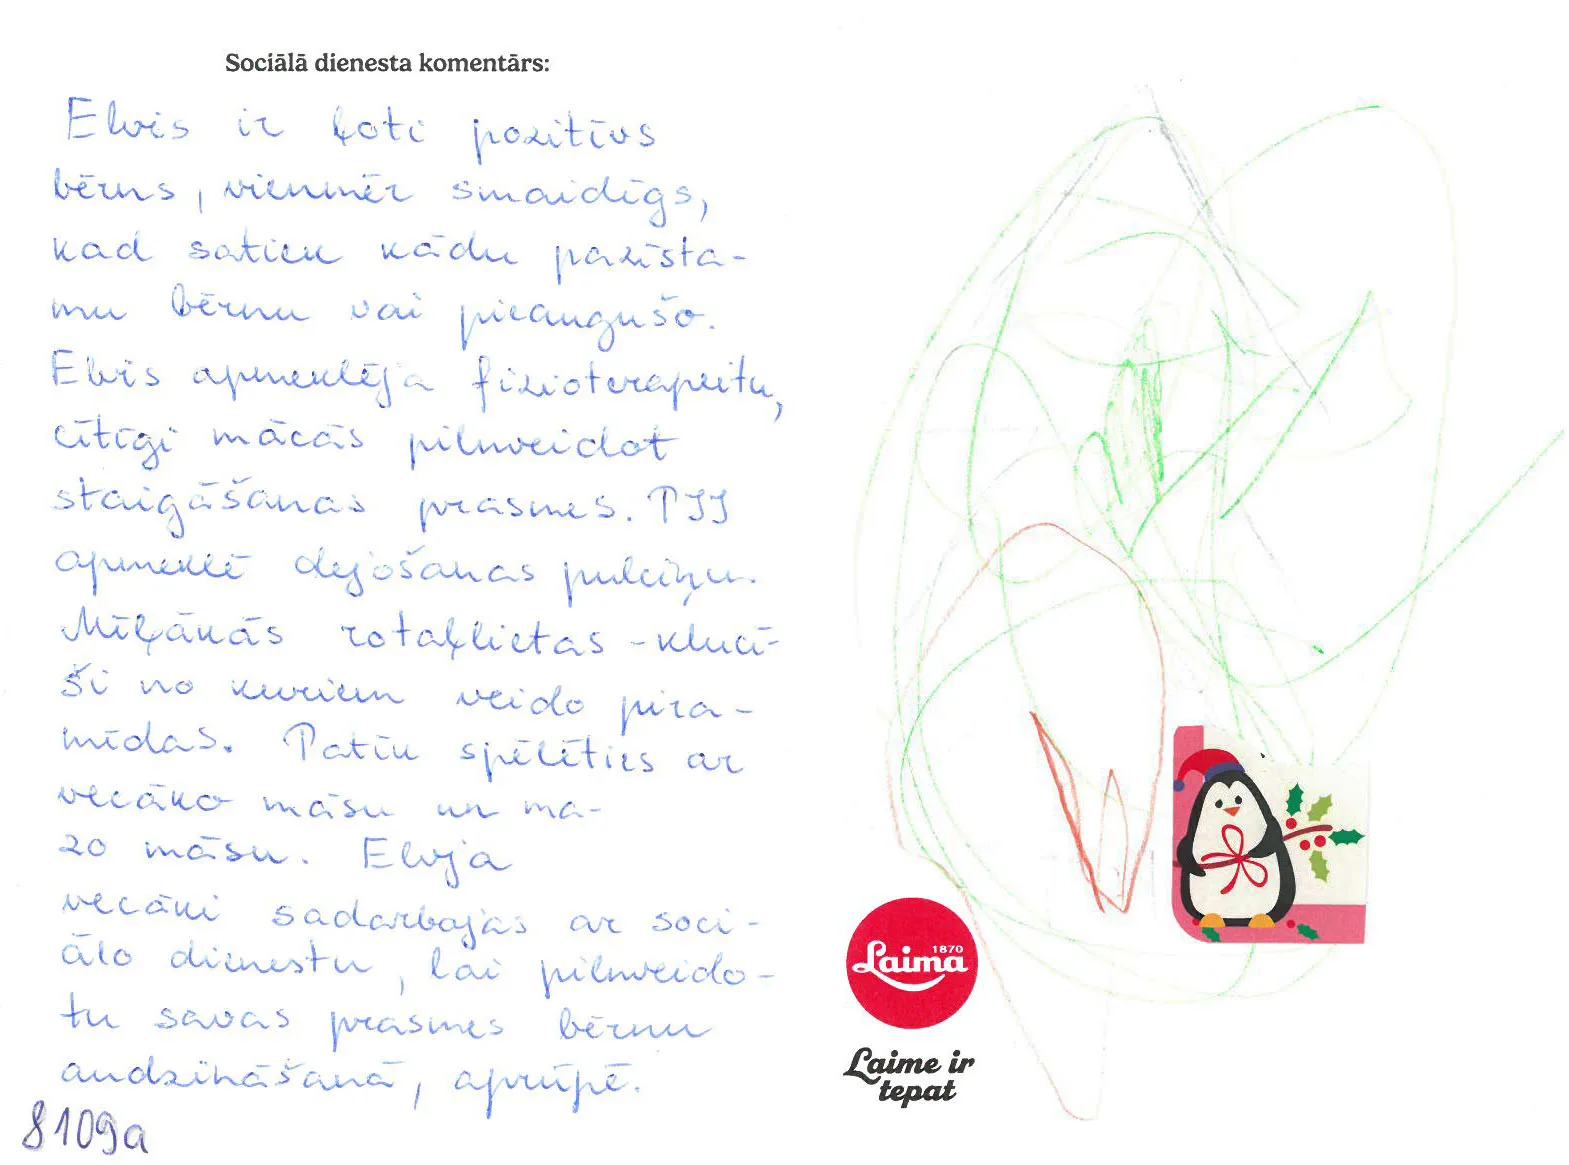 Sociālā dienesta komentārs:
Elvis ir ļoti pozitīvs
bērns, vienmēr smaidīgs,
kad satiek kādu pazīsta-
mu bērnu vai pieaugušo.
Elvis apmeklēja fizioterapeitu,
cītīgi mācās pilnveidot
staigāšanas prasmes. PII
apmeklē dejošanas pulciņu.
Mīļākās rotaļlietas - klucī-
ši no kuriem veido pira-
mīdas. Patīk spēlēties ar
vecāko māsu un ma-
zo māsu. Elvja
vecāki sadarbojas ar soci-
ālo dienestu, lai pilnveido-
tu savas prasmes bērnu
audzināšanā, aprūpē.
8109a
Laima 1870
Laime ir
tepat